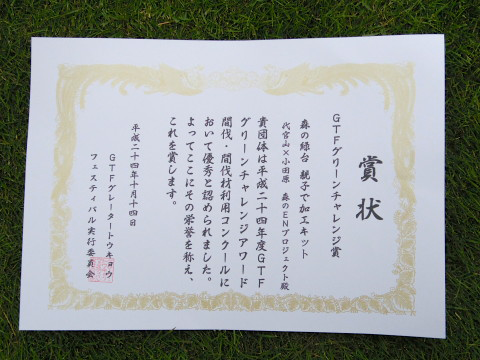 賞状
GTFグリーンチャレンジ賞
森の緑台 親子で加工キット
代官山×小田原 森のENプロジェクト殿
貴団体は平成二十四年度GTF
グリーンチャレンジアワード
間伐・間伐材利用コンクールに
おいて優秀と認められました。
よってここにその栄誉を称え、
これを賞します。
平成二十四年十月十四日
GTFグレータートウキョウ
フェスティバル実行委員会